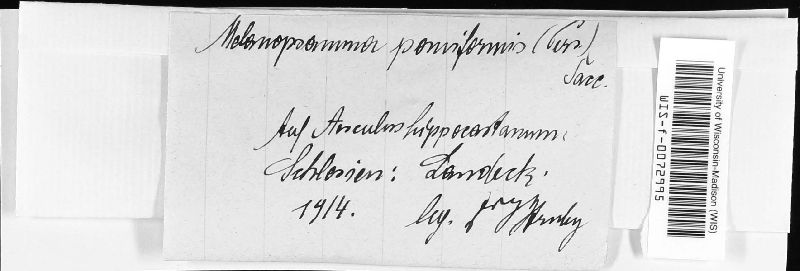 Melanopsamma pomiformis (Pers.)
Sacc.
Auf Aesculus hippocastanum.
Schlesien: Landeck.
1914. leg. Hruby
University of Wisconsin-Madison (WIS)
WIS-f-0072995